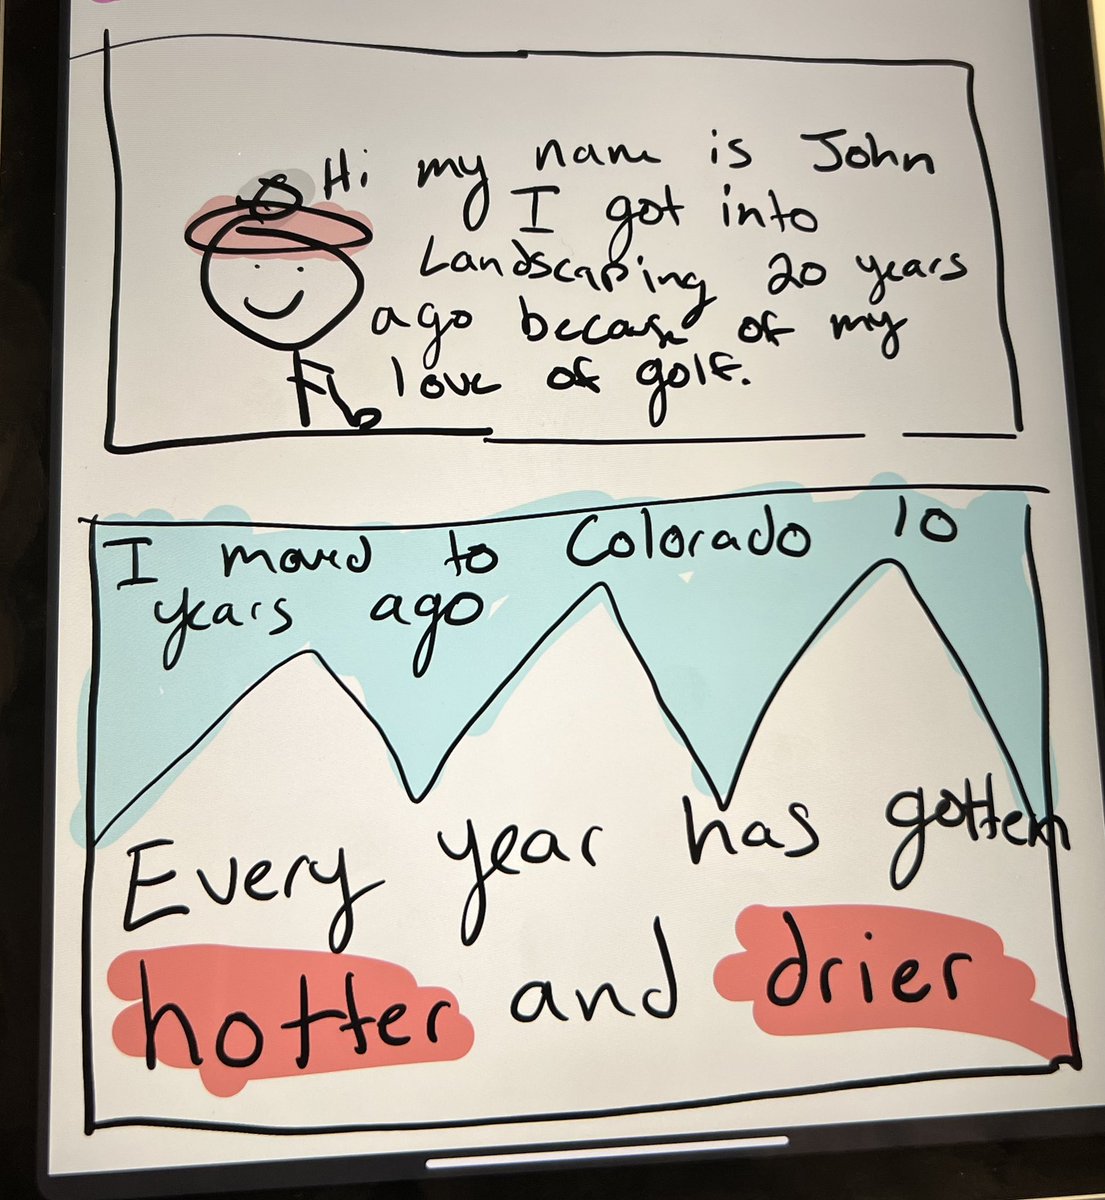 Hi my name is John
I got into
Landscaping 20 years
ago because of my
love of golf.
I moved to Colorado 10
years ago
Every year has gotten
hotter and drier